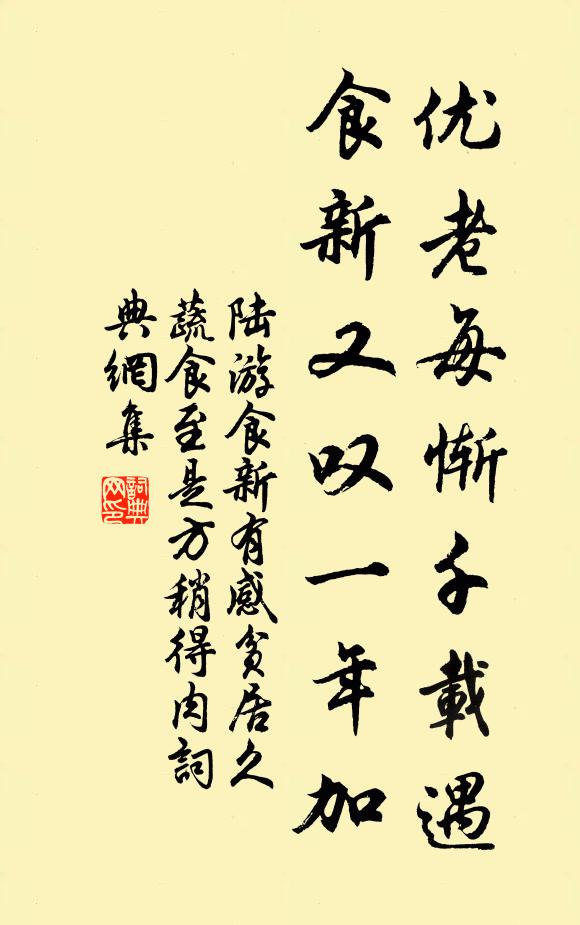 优老每惭千載遇
食新又叹一年加
陆游食新有感贫居久
蔬食至是方稍得肉詞
典網集
詞典
网印